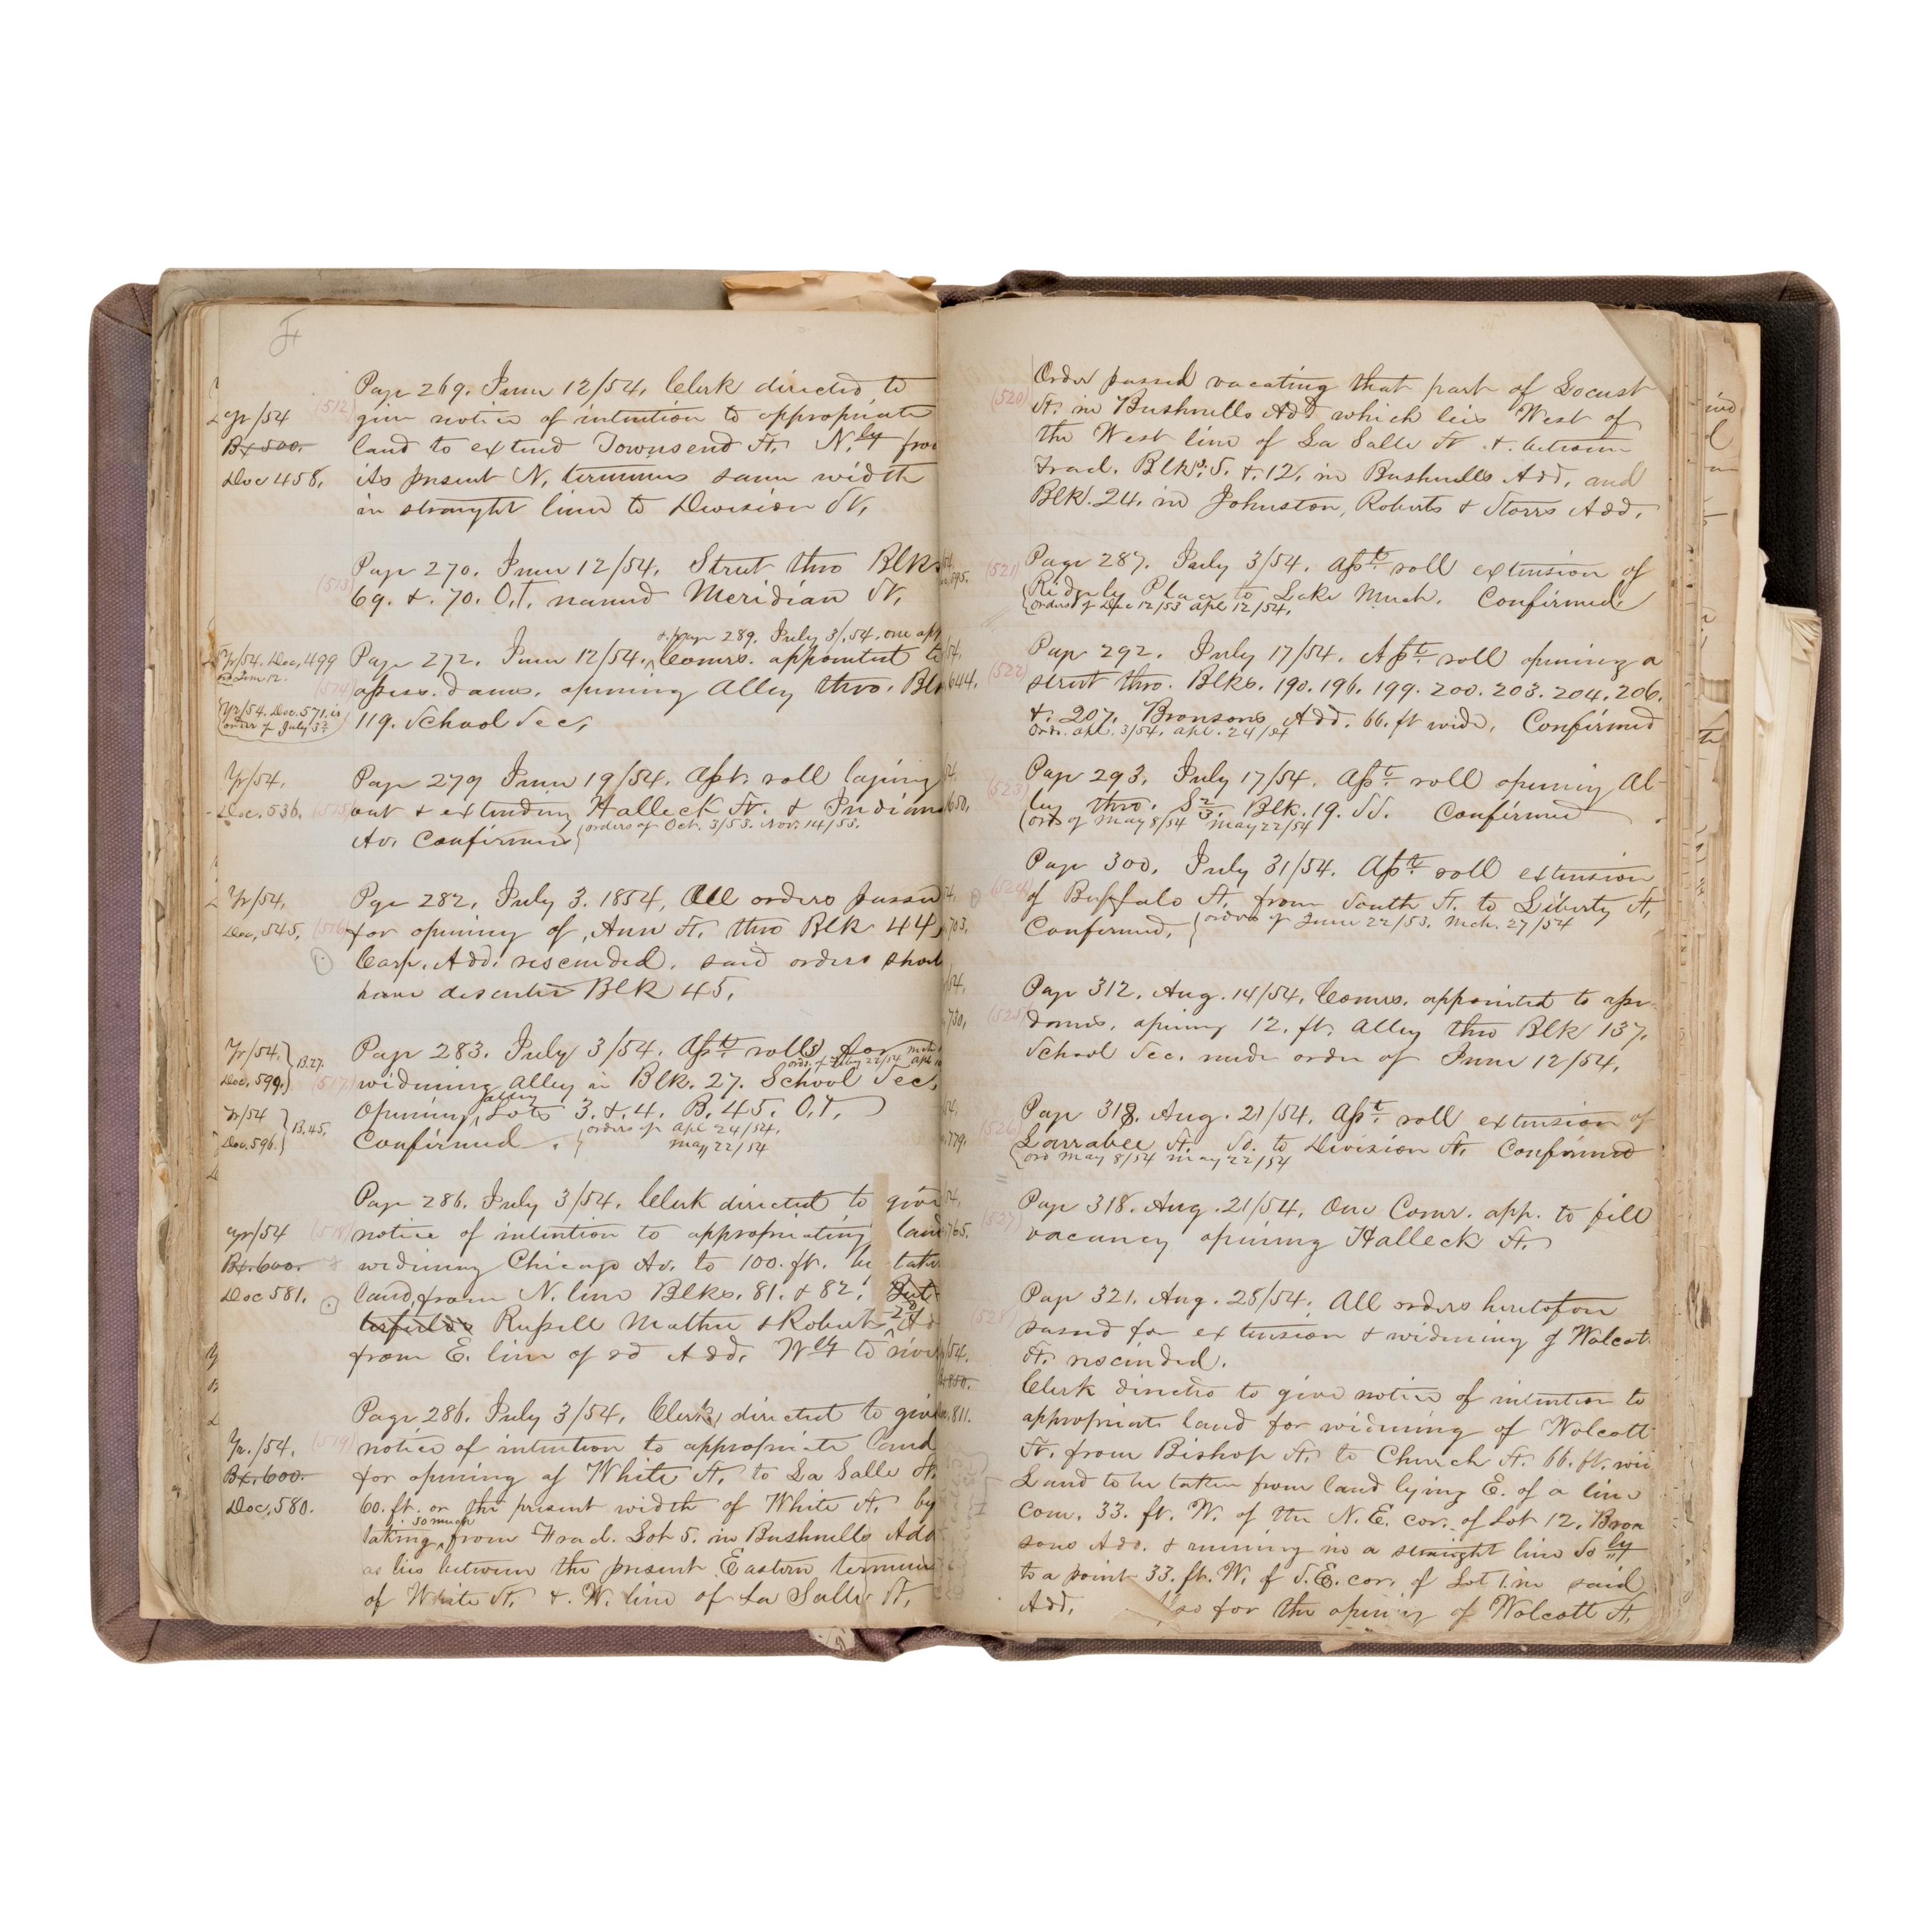 Yr/54
Bx 500.
Doc 458.
(512)
Page 269. June 12/54. Clerk directed to
give notice of intention to appropriate
land to extend Townsend St. N.ly from
its present N. terminus same width
in straight line to Division St.
(513)
Page 270. June 12/54. Street thro Blks
69. & 70. O.T. named Meridian St.
Yr/54. Doc. 499
ord June 12.
Yr/54. Doc. 571. is
order of July 3d
(514)
& page 289. July 3/54. one app
Page 272. June 12/54. Comrs. appointed to
assess. dams. opening Alley thro. Blk
119. School Sec.
Yr/54.
Doc. 536.
(515)
Page 279 June 19/54. Asst. roll laying
out & extending Halleck St. & Indiana
Av. Confirmed
orders of Oct. 3/53. Nov. 14/53.
Yr/54.
Doc. 545.
(516)
Page 282. July 3. 1854. All orders passed
for opening of Ann St. thro Blk 44
Carp. Add. rescinded. said orders shoul
have described Blk 45.
Yr/54. B.27.
Doc. 599.
Yr/54 B.45.
Doc. 596.
(517)
Page 283. July 3/54. Asst rolls for
ords. of Feby 22/54
widening alley in Blk. 27. School Sec.
alley
Opening Lots 3. & 4. B. 45. O.T.
Confirmed.
orders of Apl 24/54.
May 22/54
Yr/54
Bx. 600.
Doc 581.
(518)
Page 286. July 3/54. Clerk directed to give
notice of intention to appropriating land
widening Chicago Av. to 100. ft. be taken
land from N. line Blks. 81. & 82.
Russell Mather & Roberts 2d Ad
from E. line of sd Add. Wly to rive
Yr./54.
Bx. 600.
Doc. 580.
(519)
Page 286. July 3/54. Clerk directed to give
notice of intention to appropriate land
for opening of White St. to La Salle St.
60. ft. or the present width of White St. by
so much
taking from Frad. Lot 5. in Bushnells Add
as lies between the present Eastern terminus
of White St. & W. line of La Salle St.
(520)
Order passed vacating that part of Locust
St. in Bushnells Add which lies West of
the West line of La Salle St & between
Frad. Blks. 5. & 12. in Bushnells Add. and
Blk. 24. in Johnston, Roberts & Storrs Add.
(521)
Page 287. July 3/54. Asst. roll extension of
Ridgely Place to Lake Mich. Confirmed
orders of Dec 12/53 Apl 12/54.
(522)
644.
Page 292. July 17/54. Asst. roll opening a
street thro. Blks. 190. 196. 199. 200. 203. 204. 206.
& 207. Bronsons Add. 66. ft wide. Confirmed
Ords. Apl. 3/54. Apl. 24/54
(523)
650.
Page 293. July 17/54. Asst. roll opening Al-
ley thro. S 2/3 Blk. 19. SS. Confirmed
ords of May 8/54 May 22/54
(524)
703.
Page 300. July 31/54. Asst. roll extension
of Buffalo St. from South St. to Liberty St.
Confirmed.
orders of June 22/53. Mch. 27/54
(525)
730.
Page 312. Aug. 14/54. Comrs. appointed to asse.
dams. opening 12. ft. alley thro Blk 137.
School Sec. under order of June 12/54.
(526)
779.
Page 318. Aug. 21/54. Asst. roll extension of
Larrabee St. So. to Division St. Confirmed
ord May 8/54 May 22/54
(527)
765.
Page 318. Aug. 21/54. One Comr. app. to fill
vacancy opening Halleck St.
(528)
54.
850.
811.
Page 321. Aug. 28/54. All orders heretofore
passed for extension & widening of Wolcott
St. rescinded.
Clerk directed to give notice of intention to
appropriate land for widening of Wolcott
St. from Bishop St. to Church St. 66. ft. wi
Land to be taken from land lying E. of a line
com. 33. ft. W. of the N.E. cor. of Lot 12. Bron
sons Add. & running in a straight line So ly
to a point 33. ft. W. of S.E. cor. of Lot 1. in said
Add. Also for the opening of Wolcott St.